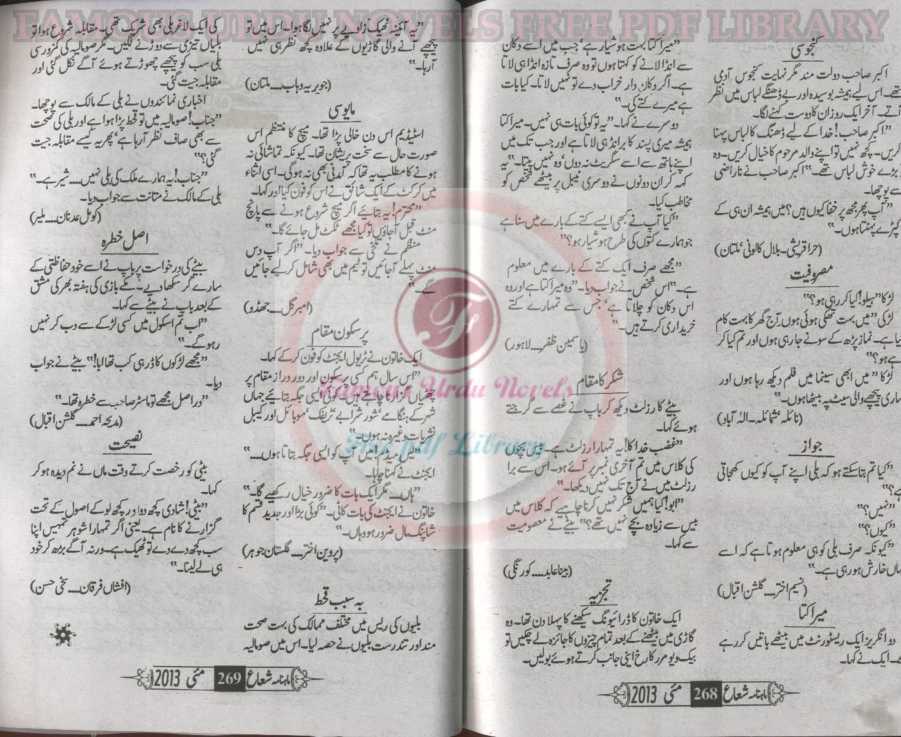 FAMOUS URDU NOVELS FREE PDF LIBRARY
کنجوسی
اکبر صاحب دولت مند مگر نہایت کنجوس آدمی
تھے۔ اس لیے ہمیشہ بوسیدہ اور بے ڈھنگے لباس میں نظر
آتے۔ آخر ایک روز ان کا دوست کہنے لگا۔
"اکبر صاحب! خدا کے لیے ڈھنگ کا لباس پہنا
کریں۔ کچھ نہیں تو اپنے والد مرحوم کا خیال کریں۔ وہ
بڑے خوش لباس تھے۔" اکبر صاحب نے ناراضی
سے پوچھا۔
"آپ پھر مجھ پر خفا کیوں ہیں؟ میں ہمیشہ ان ہی کے
کپڑے پہنتا ہوں۔"
(حرا قریشی۔ بلال کالونی، ملتان)
مصروفیت
لڑکا "ہیلو! کیا کر رہی ہو؟"
لڑکی "میں بہت تھکی ہوئی ہوں۔ آج گھر کا بہت کام
کیا ہے۔ نماز پڑھ کے سونے جا رہی ہوں اور تم کیا کر
رہے ہو؟"
لڑکا "میں ابھی سینما میں فلم دیکھ رہا ہوں اور
تمہاری پیچھے والی سیٹ پہ بیٹھا ہوں۔"
جواز
"کیا تم بتا سکتے ہو کہ بلی اپنے آپ کو کیوں کھجاتی
ہے؟"
"نہیں؟"
"کیوں؟"
"کیونکہ صرف بلی کو ہی معلوم ہوتا ہے کہ اسے
کہاں خارش ہو رہی ہے۔"
(نسیم اختر۔ گلشن اقبال)
میرا کتا
دو انگریز ایک ریسٹورنٹ میں بیٹھے باتیں کر رہے
تھے۔ ایک نے کہا۔
"میرا کتا بہت ہوشیار ہے، جب میں اسے دکان
سے انڈا لانے کو کہتا ہوں تو وہ صرف تازہ انڈا ہی لاتا
ہے۔ اگر دکان دار خراب دے تو نہیں لاتا۔ کیا بات
ہے میرے کتے کی۔"
دوسرے نے کہا۔ "یہ تو کوئی بات ہی نہیں۔ میرا کتا
ہمیشہ میری پسند کا برانڈ ہی لاتا ہے اور جب تک میں
اپنے ہاتھ سے اسے سگریٹ نہ دوں، وہ نہیں پیتا۔" یہ
کہہ کر ان دونوں نے دوسری ٹیبل پر بیٹھے شخص کو
مخاطب کیا۔
"کیا آپ نے کبھی ایسے کتے کے بارے میں سنا ہے
جو ہمارے کتوں کی طرح ہوشیار ہو؟"
"مجھے صرف ایک کتے کے بارے میں معلوم
ہے۔" اس شخص نے جواب دیا۔ "وہ میرا کتا ہے اور وہ
اس دکان کو چلاتا ہے، جس سے تمہارے کتے
خریداری کرتے ہیں۔"
(یاسمین ظفر۔ لاہور)
شکر کا مقام
بیٹے کا رزلٹ دیکھ کر باپ نے غصے سے گرجتے
ہوئے کہا۔
"غضب خدا کا! یہ تمہارا رزلٹ ہے۔ بیس بچوں
کی کلاس میں تم آخری نمبر پر آئے ہو۔ اس سے برا
رزلٹ میں نے آج تک نہیں دیکھا۔"
"ابو! کیا ہمیں شکر نہیں کرنا چاہیے کہ کلاس میں
بیس سے زیادہ بچے نہیں تھے؟" بیٹے نے معصومیت
سے کہا۔
(بینا عابد۔ کورنگی)
تجزیہ
ایک خاتون کا ڈرائیونگ سیکھنے کا پہلا دن تھا۔ وہ
گاڑی میں بیٹھنے کے بعد تمام چیزوں کا جائزہ لے چکیں تو
بیک ویو مرر کا رخ اپنی جانب کرتے ہوئے بولیں۔
ماہنامہ شعاع 268 مئی 2013
"یہ آئینہ ٹھیک زاویے پر نہیں لگا ہوا۔ اس میں تو
پیچھے آنے والی گاڑیوں کے علاوہ کچھ نظر ہی نہیں
آ رہا۔"
(جویریہ وہاب۔ ملتان)
مایوسی
اسٹیڈیم اس دن خالی پڑا تھا۔ میچ کا منتظم اس
صورت حال سے سخت پریشان تھا۔ کیونکہ تماشائی نہ
ہونے کا مطلب یہ تھا کہ آمدنی بھی نہ ہوگی۔ اسی اثناء
میں کرکٹ کے ایک شائق نے اس کو فون کیا اور کہا۔
"محترم! یہ بتائیے اگر میچ شروع ہونے سے پانچ
منٹ قبل آ جاؤں تو کیا مجھے ٹکٹ مل جائے گا۔"
منتظم نے تلخی سے جواب دیا۔ "اگر آپ دس
منٹ پہلے آ جائیں تو ٹیم میں بھی شامل کر لیے جائیں
گے۔"
(امبر گل۔ جھڈو)
پر سکون مقام
ایک خاتون نے ٹریول ایجنٹ کو فون کر کے کہا۔
"اس سال ہم کسی پر سکون اور دور دراز مقام پر
چھٹیاں گزارنا چاہتے ہیں جہاں
شہر کے ہنگامے، شور شرابے، ٹریفک، موبائل اور کیبل
نشریات وغیرہ نہ ہوں۔"
آپ کو ایسی جگہ بتاتا ہوں۔۔۔"
ایجنٹ نے کہنا چاہا۔
"ہاں۔ مگر ایک بات کا ضرور خیال رکھیے گا۔"
خاتون نے ایجنٹ کی بات کاٹی۔ "کوئی بڑا اور جدید قسم کا
شاپنگ مال ضرور ہو وہاں۔"
(پروین اختر۔ گلستان جوہر)
بہ سبب قحط
بلیوں کی ریس میں مختلف ممالک کی بہت صحت
مند اور تندرست بلیوں نے حصہ لیا۔ اس میں صومالیہ
کی ایک لاغر بلی بھی شریک تھی۔ مقابلہ شروع ہوا تو
بلیاں تیزی سے دوڑنے لگیں۔ مگر صومالیہ کی کمزور سی
بلی سب کو پیچھے چھوڑتے ہوئے آگے نکل گئی اور
مقابلہ جیت گئی۔
اخباری نمائندوں نے بلی کے مالک سے پوچھا۔
"جناب! صومالیہ میں تو قحط پڑا ہوا ہے اور بلی کی صحت
سے بھی صاف نظر آ رہا ہے، پھر یہ کیسے مقابلہ جیت
گئی؟"
"جناب! یہ ہمارے ملک کی بلی نہیں۔۔۔ شیر ہے۔"
بلی کے مالک نے متانت سے جواب دیا۔
(کومل عدنان۔ ملیر)
اصل خطرہ
بیٹے کی درخواست پر باپ نے اسے خود حفاظتی کے
سارے گر سکھا دیے۔ مکے بازی کی ہفتہ بھر کی مشق
کے بعد باپ نے بیٹے سے کہا۔
"اب تم اسکول میں کسی لڑکے سے دب کر نہیں
رہو گے۔"
"مجھے لڑکوں کا ڈر ہی کب تھا ابا!" بیٹے نے جواب
دیا۔
"دراصل مجھے تو ماسٹر صاحب سے خطرہ تھا۔"
(مدیحہ احمد۔ گلشن اقبال)
نصیحت
بیٹی کو رخصت کرتے وقت ماں نے نم دیدہ ہو کر
کہا۔
"بیٹی! شادی کچھ دو اور کچھ لو کے اصول کے تحت
گزارنے کا نام ہے۔ یعنی اگر تمہارا شوہر تمہیں اپنا
سب کچھ دے دے تو ٹھیک ہے۔ ورنہ آگے بڑھ کر خود
ہی لے لینا۔"
(افشاں فرقان۔ سخی حسن)
ماہنامہ شعاع 269 مئی 2013
Famous Urdu Novels
Free pdf Library